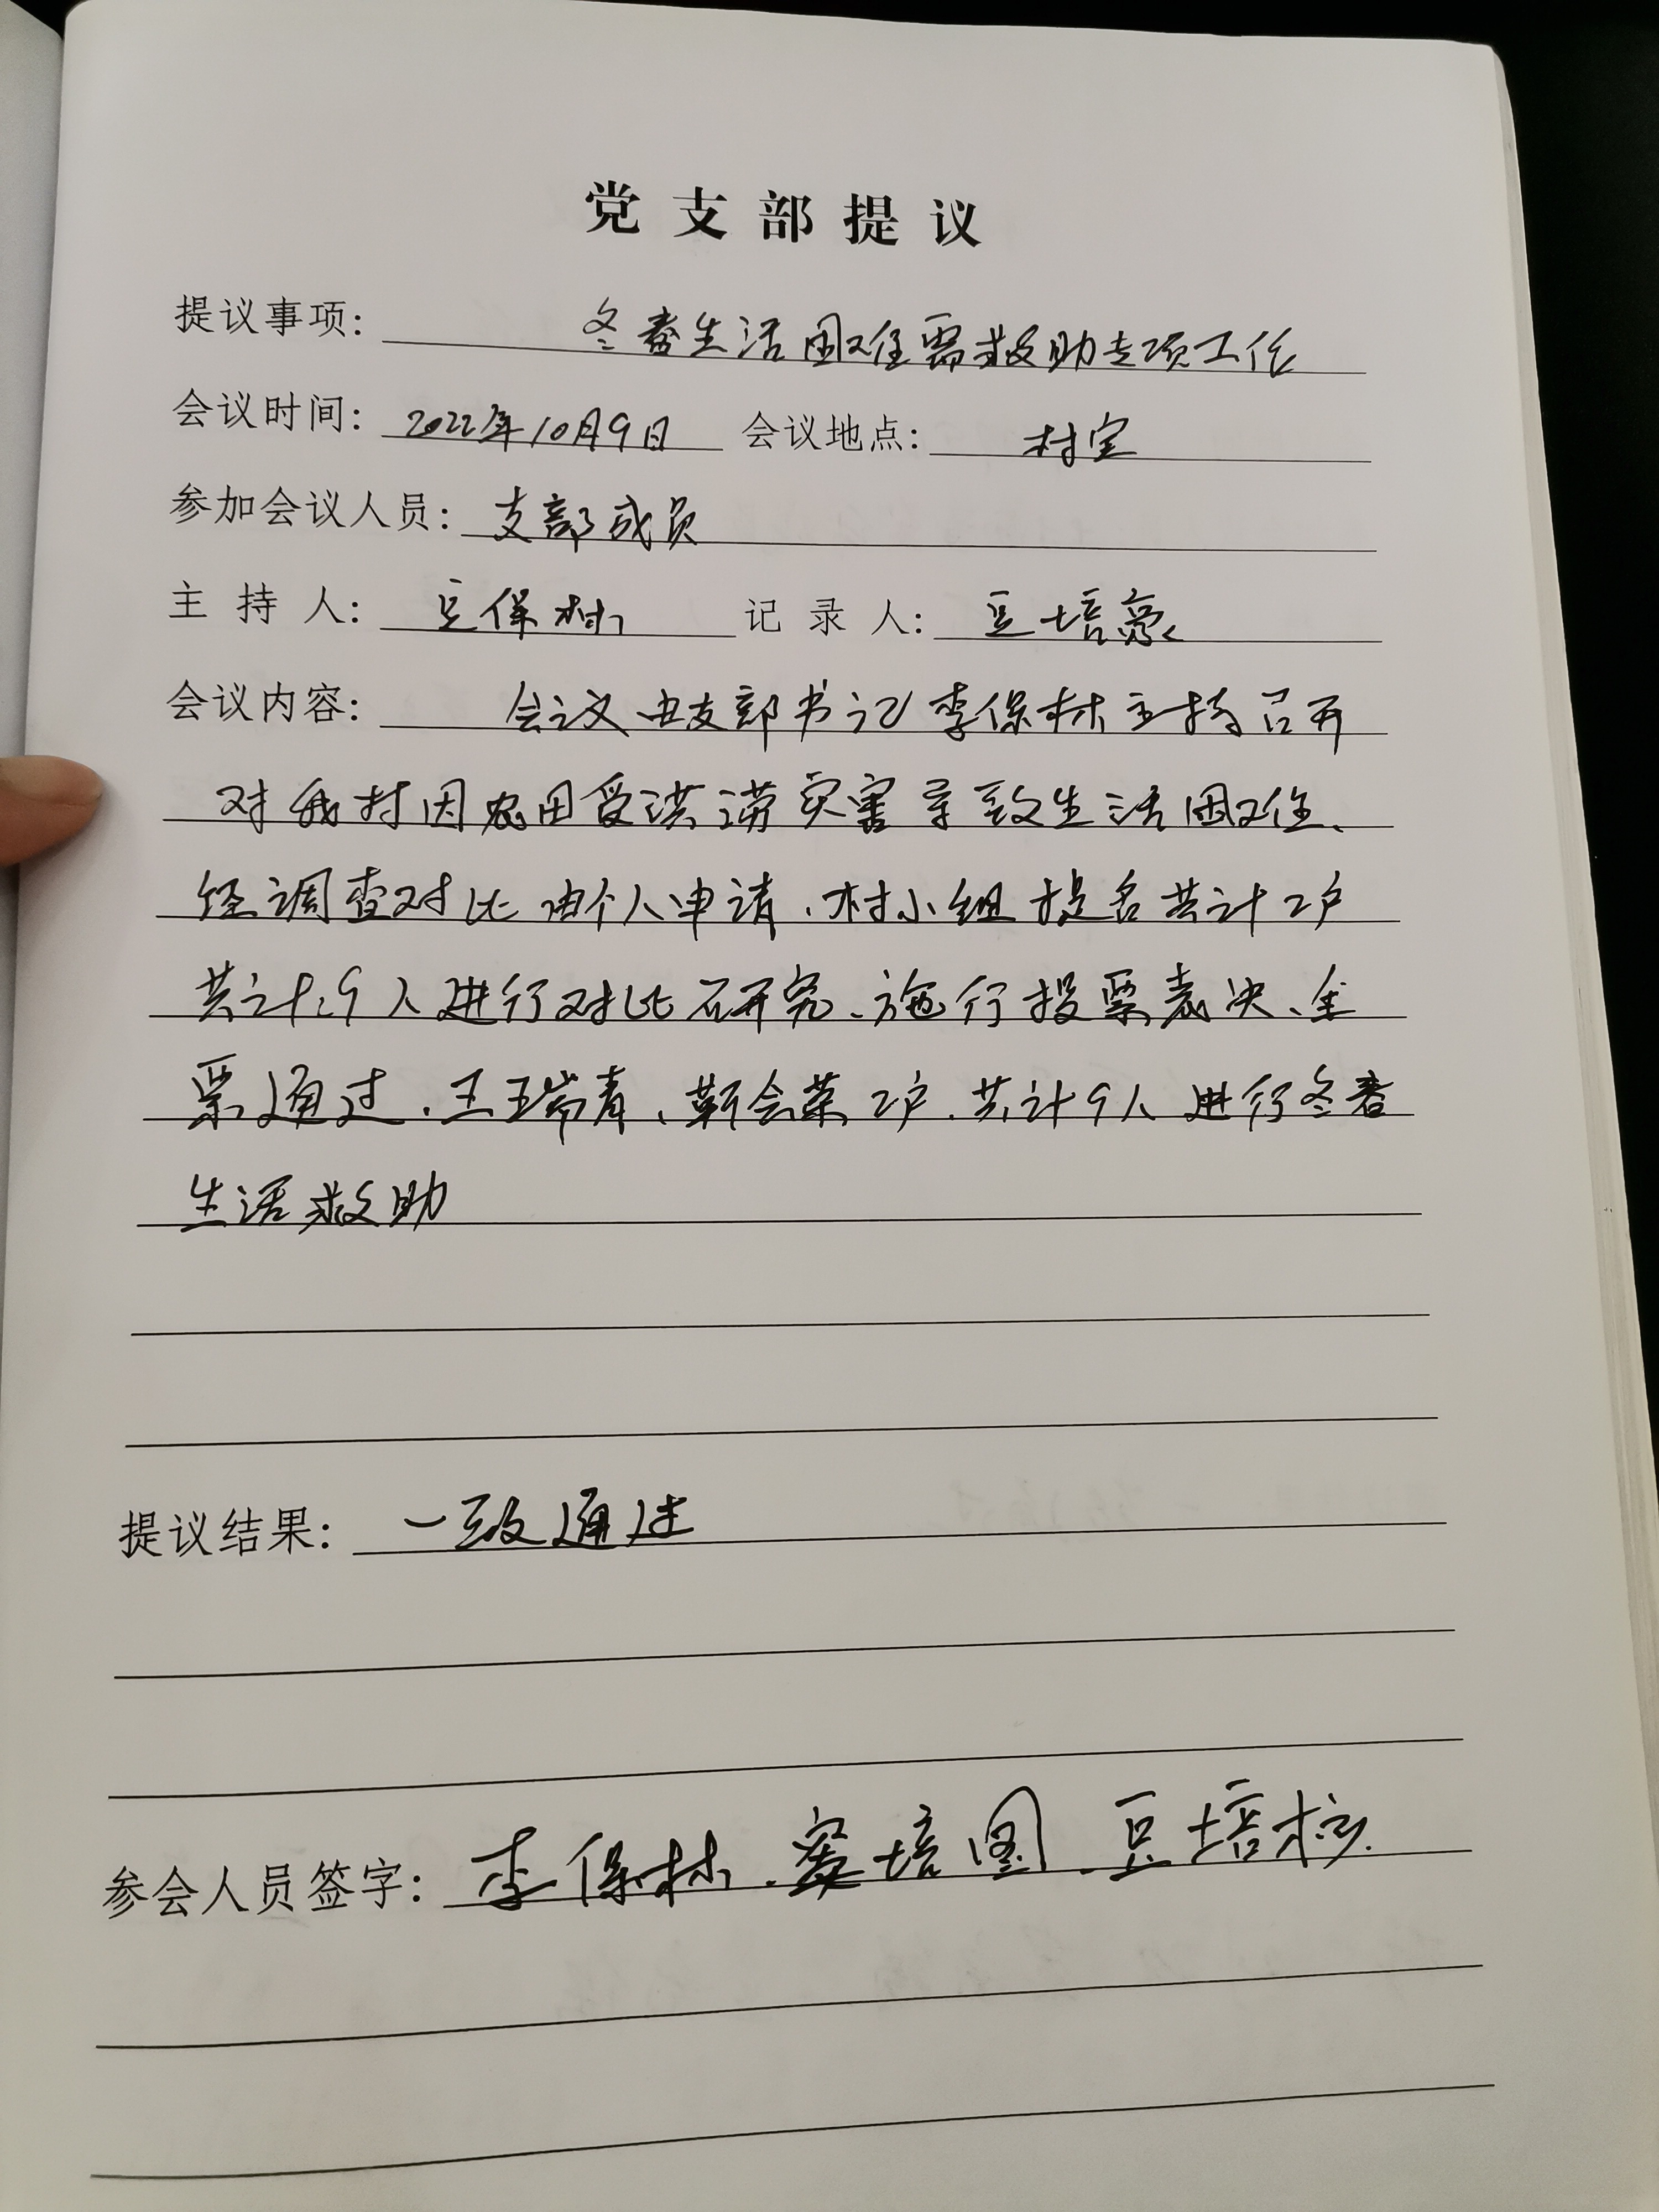 党支部提议
提议事项: 冬春生活困难需救助专项工作
会议时间: 2022年10月9日 会议地点: 村室
参加会议人员: 支部成员
主持人: 豆保村 记录人: 豆培亮
会议内容: 会议由支部书记李保林主持召开
对我村因农田受洪涝灾害导致生活困难、
经调查对比由个人申请、村小组提名共计2户
共计:9人进行对比研究、施行投票表决、全
票通过、王瑞青、靳会荣2户、共计9人进行冬春
生活救助
提议结果: 一致通过
参会人员签字: 李保林、窦培图、豆培松